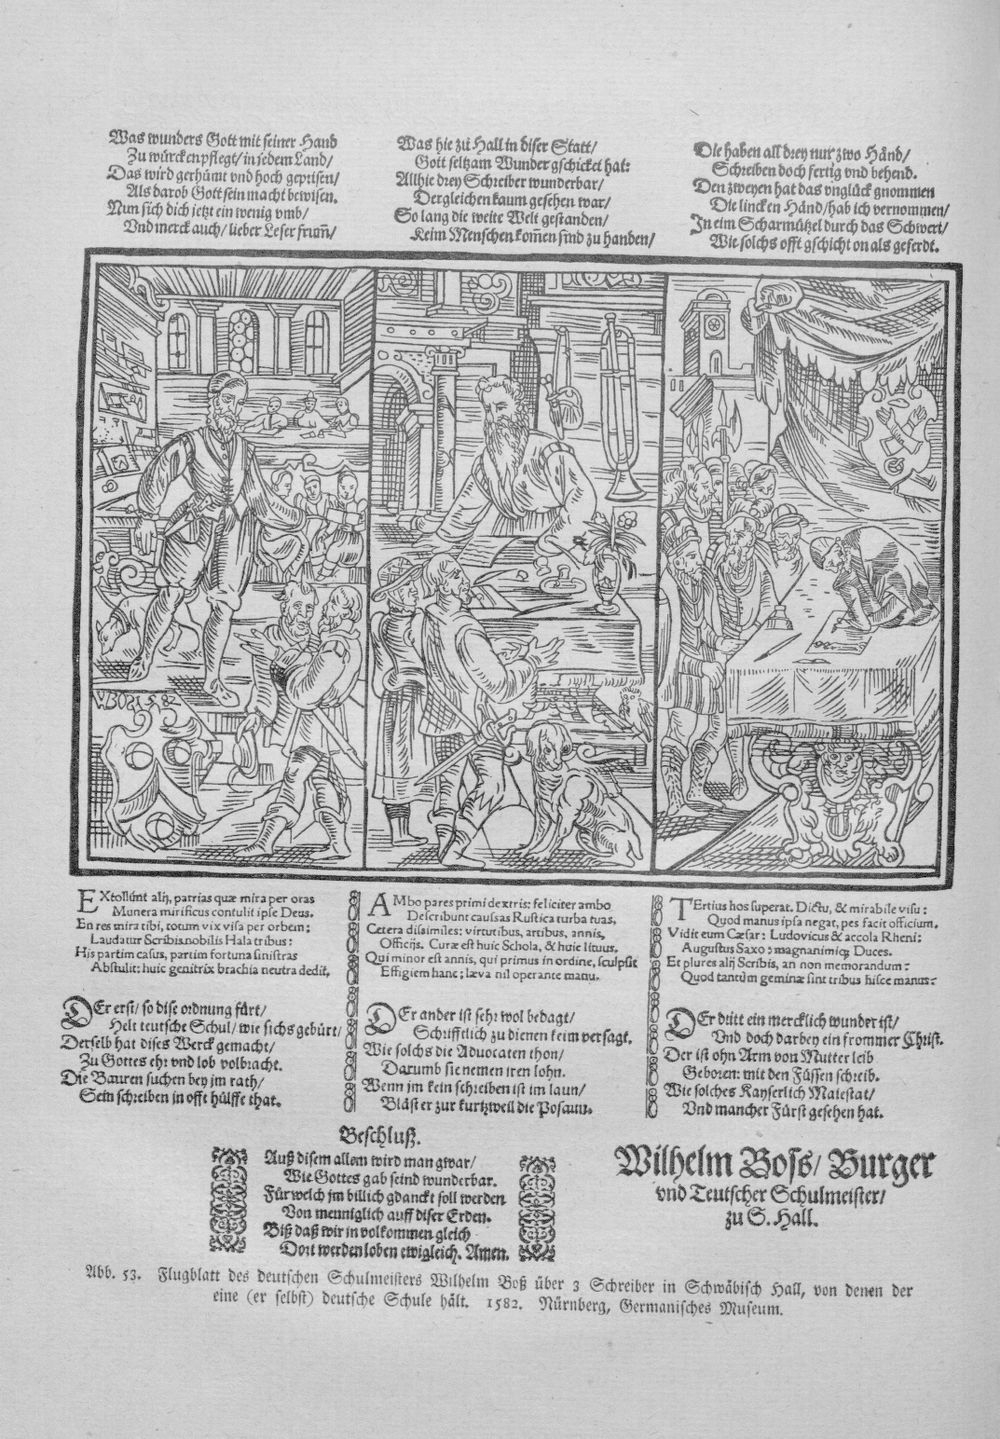 Was wunders Gott mit seiner Hand
Zu würcken pflegt/ in jedem Land/
Das wird gerhümt vnd hoch geprisen/
Als darob Gott sein macht bewisen.
Nun sich dich jetzt ein wenig vmb/
Vnd merck auch/ lieber Leser frum̄/
Was hie zu Hall in diser Statt/
Gott seltzam Wunder gschicket hat:
Allhie drey Schreiber wunderbar/
Dergleichen kaum gesehen war/
So lang die weite Welt gestanden/
Keim Menschen kom̄en sind zu handen/
Die haben all drey nur zwo Händ/
Schreiben doch fertig vnd behend.
Den zweyen hat das vnglück gnommen
Die lincken Händ/ hab ich vernommen/
In eim Scharmützel durch das Schwert/
Wie solchs offt gschicht on als geferdt.
W.BOS 1582
EXtollunt alij, patrias quæ mira per oras
Munera mirificus contulit ipse Deus.
En res mira tibi, totum vix visa per orbem;
Laudatur Scribis nobilis Hala tribus:
His partim casus, partim fortuna sinistras
Abstulit: huic genitrix brachia neutra dedit.
AMbo pares primi dextris: feliciter ambo
Describunt caussas Rustica turba tuas.
Cetera dissimiles: virtutibus, artibus, annis,
Officijs. Curæ est huic Schola, & huic lituus.
Qui minor est annis, qui primus in ordine, sculpsit
Effigiem hanc; læva nil operante manu.
TErtius hos superat. Dictu, & mirabile visu:
Quod manus ipsa negat, pes facit officium.
Vidit eum Cæsar: Ludovicus & accola Rheni:
Augustus Saxo: magnanimiq; Duces.
Et plures alij Scribis, an non memorandum:
Quod tantùm geminæ sint tribus hisce manus:
DEr erst/ so dise ordnung fürt/
Helt teutsche Schul/ wie sichs gebürt/
Derselb hat dises Werck gemacht/
Zu Gottes ehr vnd lob volbracht.
Die Bauren suchen bey jm rath/
Sein schreiben in offt hülffe that.
DEr ander ist sehr wol bedagt/
Schrifftlich zu dienen keim versagt.
Wie solchs die Aduocaten thon/
Darumb sie nemen iren lohn.
Wenn jm kein schreiben ist im laun/
Bläst er zur kurtzweil die Posaun.
DEr dritt ein mercklich wunder ist/
Vnd doch darbey ein frommer Christ.
Der ist ohn Arm von Mutter leib
Geboren: mit den Füssen schreib.
Wie solches Kayserlich Maiestat/
Vnd mancher Fürst gesehen hat.
Beschluß.
Auß disem allem wird man gwar/
Wie Gottes gab seind wunderbar.
Für welch jm billich gdanckt soll werden
Von menniglich auff diser Erden.
Biß daß wir in volkommen gleich
Dort werden loben ewigleich. Amen.
Wilhelm Boss/ Burger
vnd Teutscher Schulmeister/
zu S. Hall.
Abb. 53. Flugblatt des deutschen Schulmeisters Wilhelm Boß über 3 Schreiber in Schwäbisch Hall, von denen der
eine (er selbst) deutsche Schule hält. 1582. Nürnberg, Germanisches Museum.